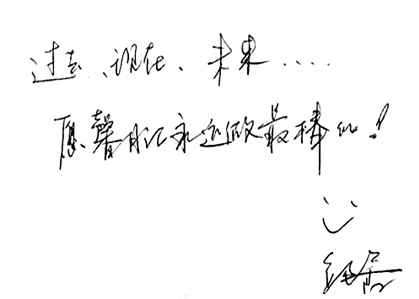 过去、现在、未来.....
愿馨能永远做最棒的！